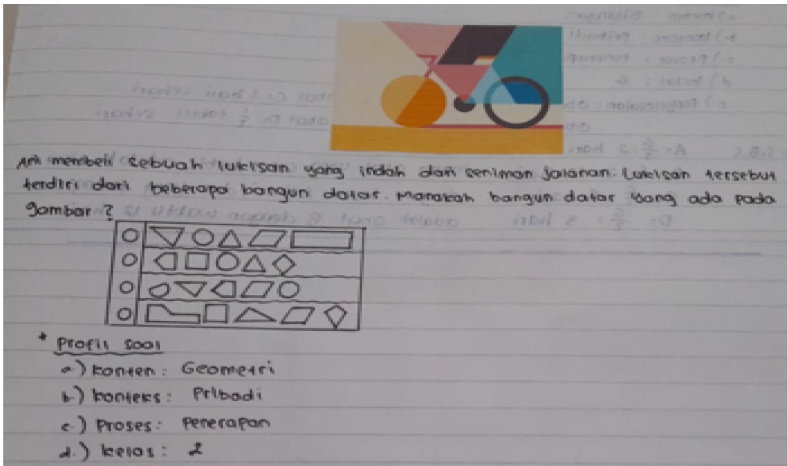 Ani membeli sebuah lukisan yang indah dari seniman jalanan. Lukisan tersebut
terdiri dari beberapa bangun datar. Manakah bangun datar yang ada pada
gambar?
* Profil soal
a.) Konten: Geometri
b.) Konteks: Pribadi
c.) Proses: Penerapan
d.) Kelas: 2